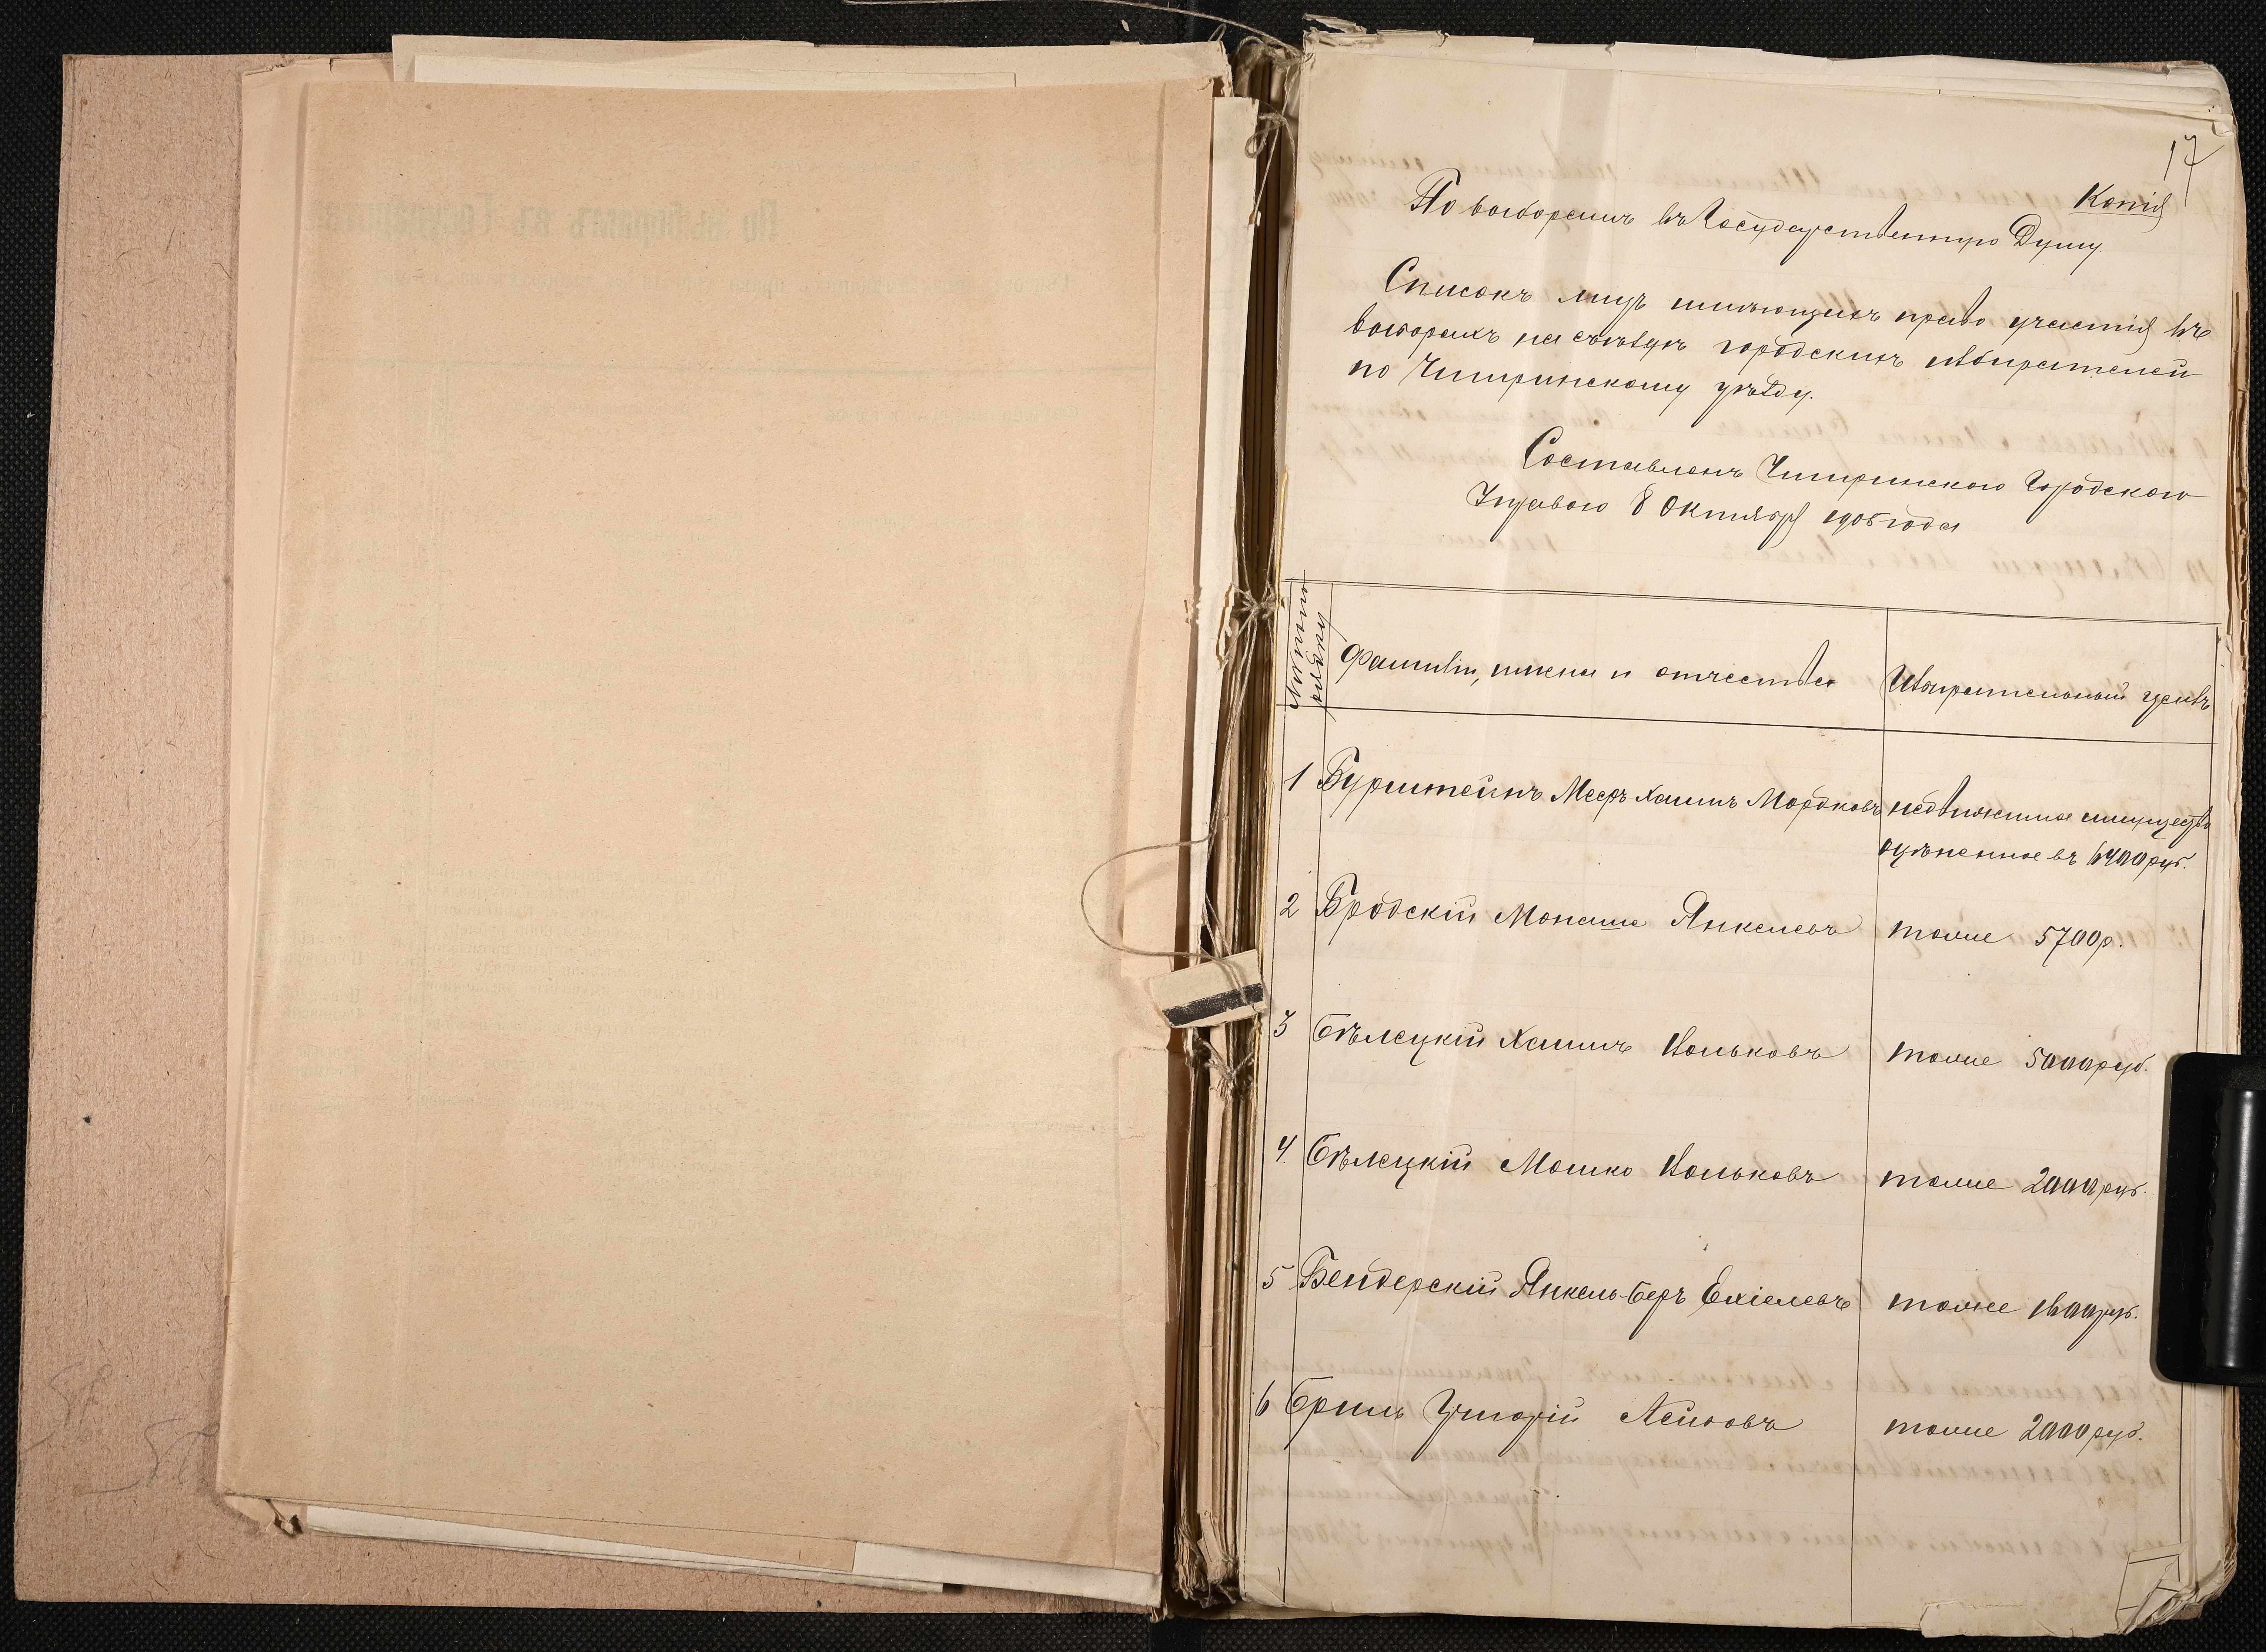 17
Копія
По выборамъ въ Государственную Думу
Списокъ лицъ имѣющихъ право участія въ
выборахъ на съѣздѣ городскихъ избирателей
по Чигиринскому уѣзду.
Составленъ Чигиринскою Городскою
Управою 8 Октября 1905 года
Фамиліи, имена и отчества
Избирательный цензъ
1 Бурштейнъ Мееръ-Хаимъ Мордковъ недвижимое имущество
оцѣненное въ 6400 руб.
2 Бродскій Монаше Янкелевъ тоже 5700 р.
3 Бѣлецкій Хаимъ Ицьковъ тоже 5000 руб.
4. Бѣлецкій Мошко Ицьковъ тоже 2000 руб.
5 Бендерскій Янкель-Беръ Ехіелевъ тоже руб.
6 Бриль Григорій тоже 2000 руб.